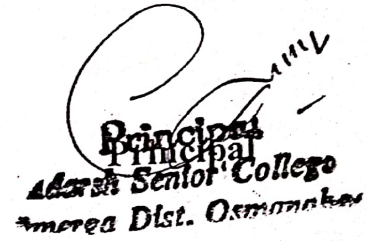 Principal
Principal
Adarsh Senior College
Omerga Dist. Osmanabad